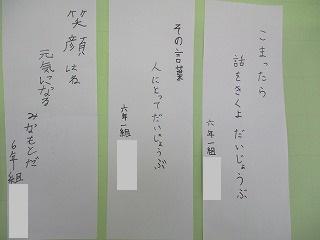 こまったら
話をきくよ だいじょうぶ
六年一組
その言葉
人にとってだいじょうぶ
六年一組
笑顔はね
元気になる
みなもとだ
6年組